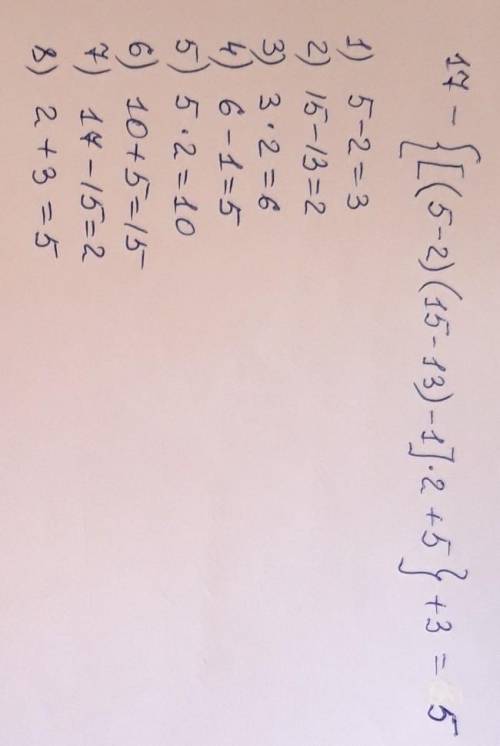 17 - {[(5-2)(15-13)-1]·2+5}+3 = 5
1) 5-2=3
2) 15-13=2
3) 3·2=6
4) 6-1=5
5) 5·2=10
6) 10+5=15
7) 17-15=2
8) 2+3=5